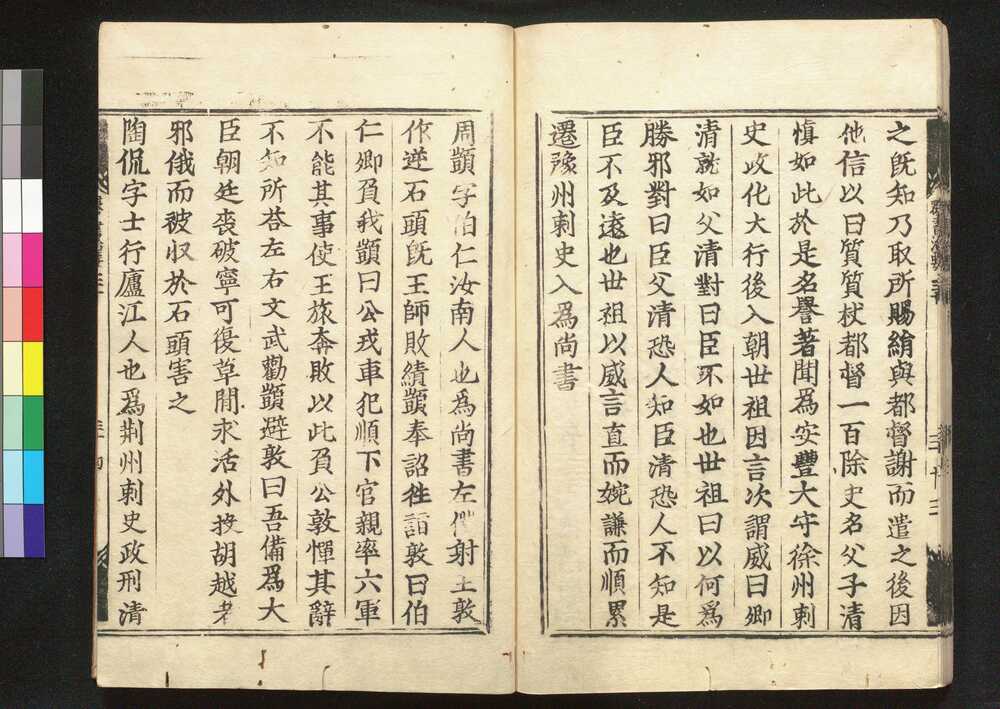 之既知乃取所賜絹與都督謝而遣之後因
他信以白質質杖都督一百除吏名父子清
慎如此於是名譽著聞為安豐大守徐州刺
史政化大行後入朝世祖因言次謂威曰卿
清就如父清對曰臣不如也世祖曰以何為
勝邪對曰臣父清恐人知臣清恐人不知是
臣不及遠也世祖以威言直而婉謙而順累
遷豫州刺史入為尚書
周顗字伯仁汝南人也為尚書左僕射王敦
作逆石頭既王師敗績顗奉詔往詣敦曰伯
仁卿負我顗曰公戎車犯順下官親率六軍
不能其事使王旅奔敗以此負公敦憚其辭
不知所答左右文武勸顗避敦曰吾備為大
臣朝廷喪破寧可復草間求活外投胡越者
邪俄而被収於石頭害之
陶侃字士行廬江人也為荊州刺史政刑清